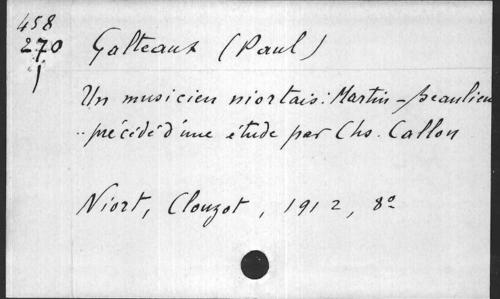 458
270
Galteaux (Paul)
Un musicien niortais: Martin-Beaulieu
précédé d'une étude par Chs. Callon
Niort, Clouzot, 1912, 8°